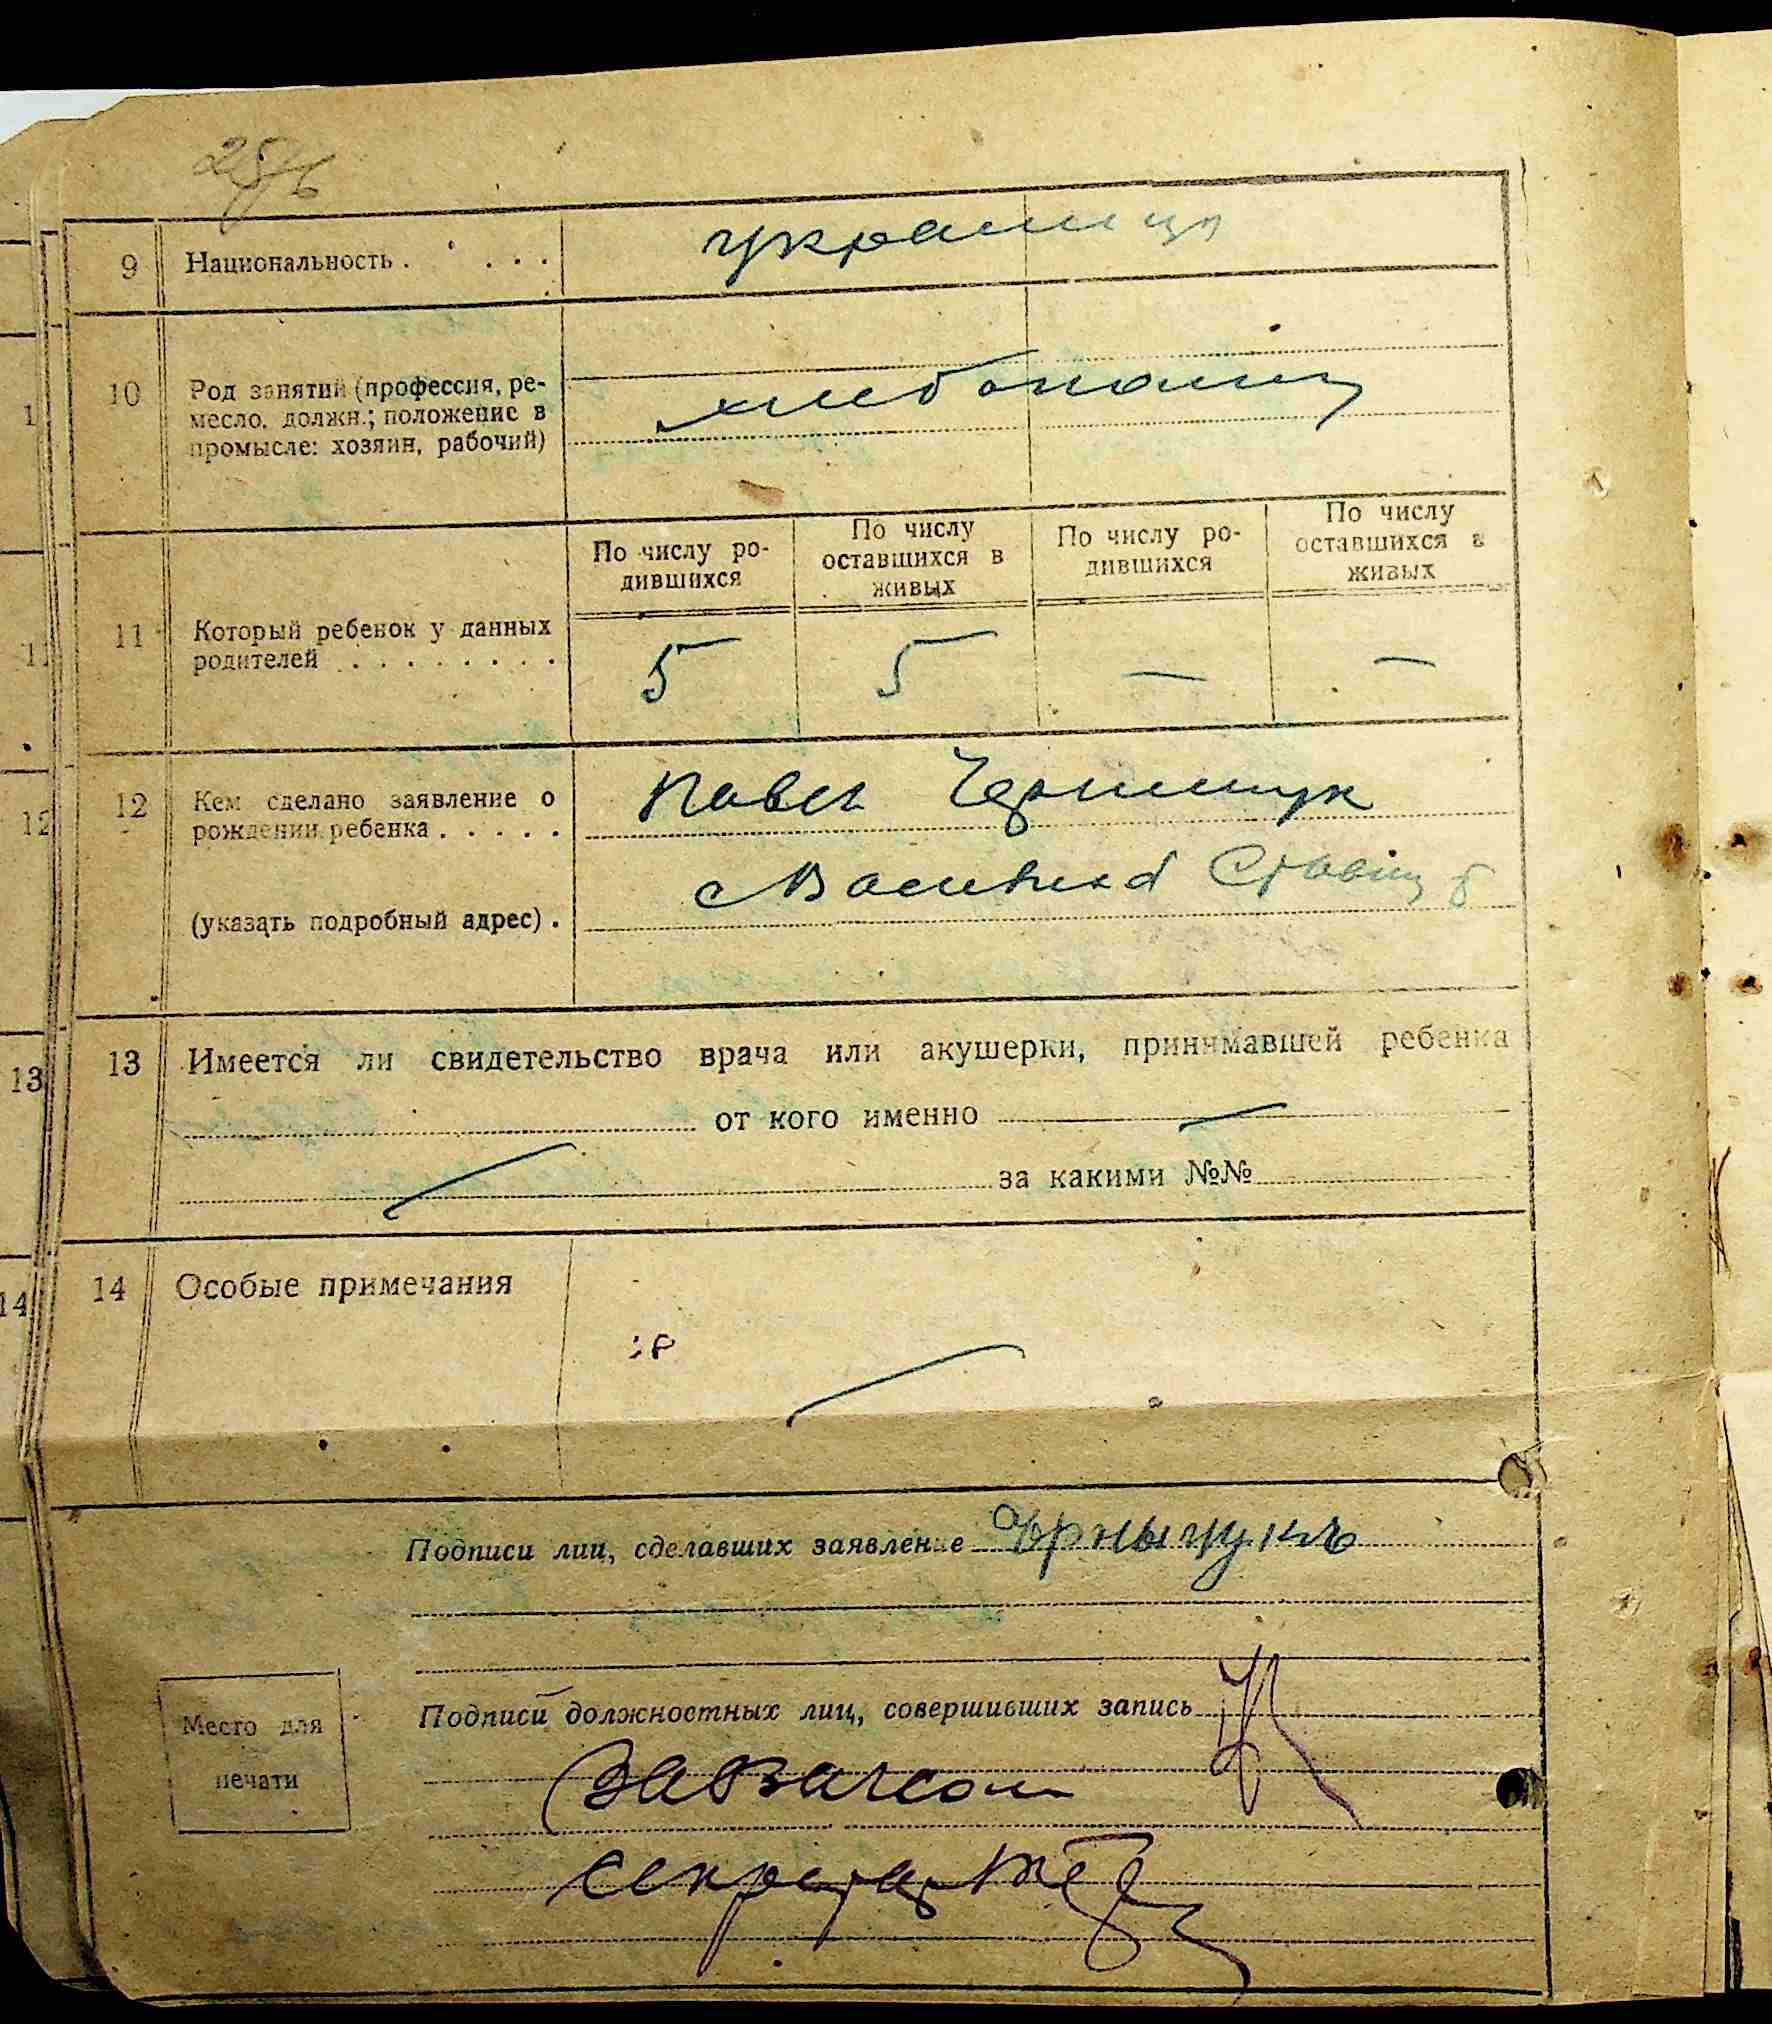 9 Национальность . . . . украинци
10 Род занятий (профессия, ре-
месло, должн.; положение в
промысле: хозяин, рабочий)
11 Который ребенок у данных
родителей . . . . . . . .
По числу ро-
дившихся
По числу
оставшихся в
живых
По числу ро-
дившихся
По числу
оставшихся в
живых
5 5 — —
12 Кем сделано заявление о
рождении ребенка . . . . .
Павел
(указать подробный адрес) .
13 Имеется ли свидетельство врача или акушерки, принимавшей ребенка
от кого именно —
за какими №№
14 Особые примечания
Подписи лиц, сделавших заявление
Подписи должностных лиц, совершивших запись
Место для
печати
Секретарь
1
11
12
13
14